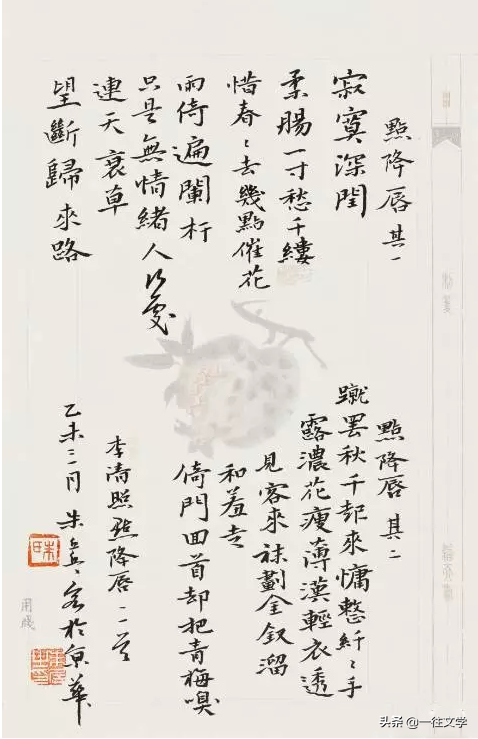 點降唇 其一
寂寞深閨
柔腸一寸愁千縷
惜春〻去幾點催花
雨倚遍闌杆
只是無情緒人何處
連天衰草
望斷歸來路
點降唇 其二
蹴罷秋千起來慵整纤〻手
露濃花瘦薄漢輕衣透
見客來袜剗金釵溜
和羞走
倚門回首却把青梅嗅
李清照點降唇二首
乙未三月 朱
於京華
用牋
头条 @一往文学